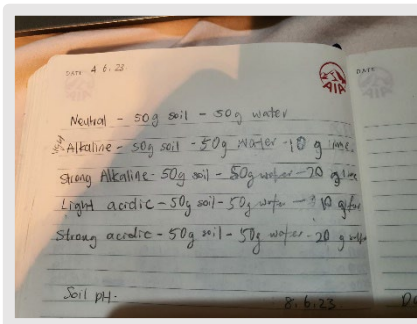 DATE 4.6.23
AIA
DATE
Neutral - 50g soil - 50g water
Alkaline - 50g soil - 50g water - 10 g
Strong Alkaline - 50g soil - 50g water - 20 g
Light acidic - 50g soil - 50g water - 10 g
Strong acidic - 50g soil - 50g water - 20 g
Soil pH.
8.6.23